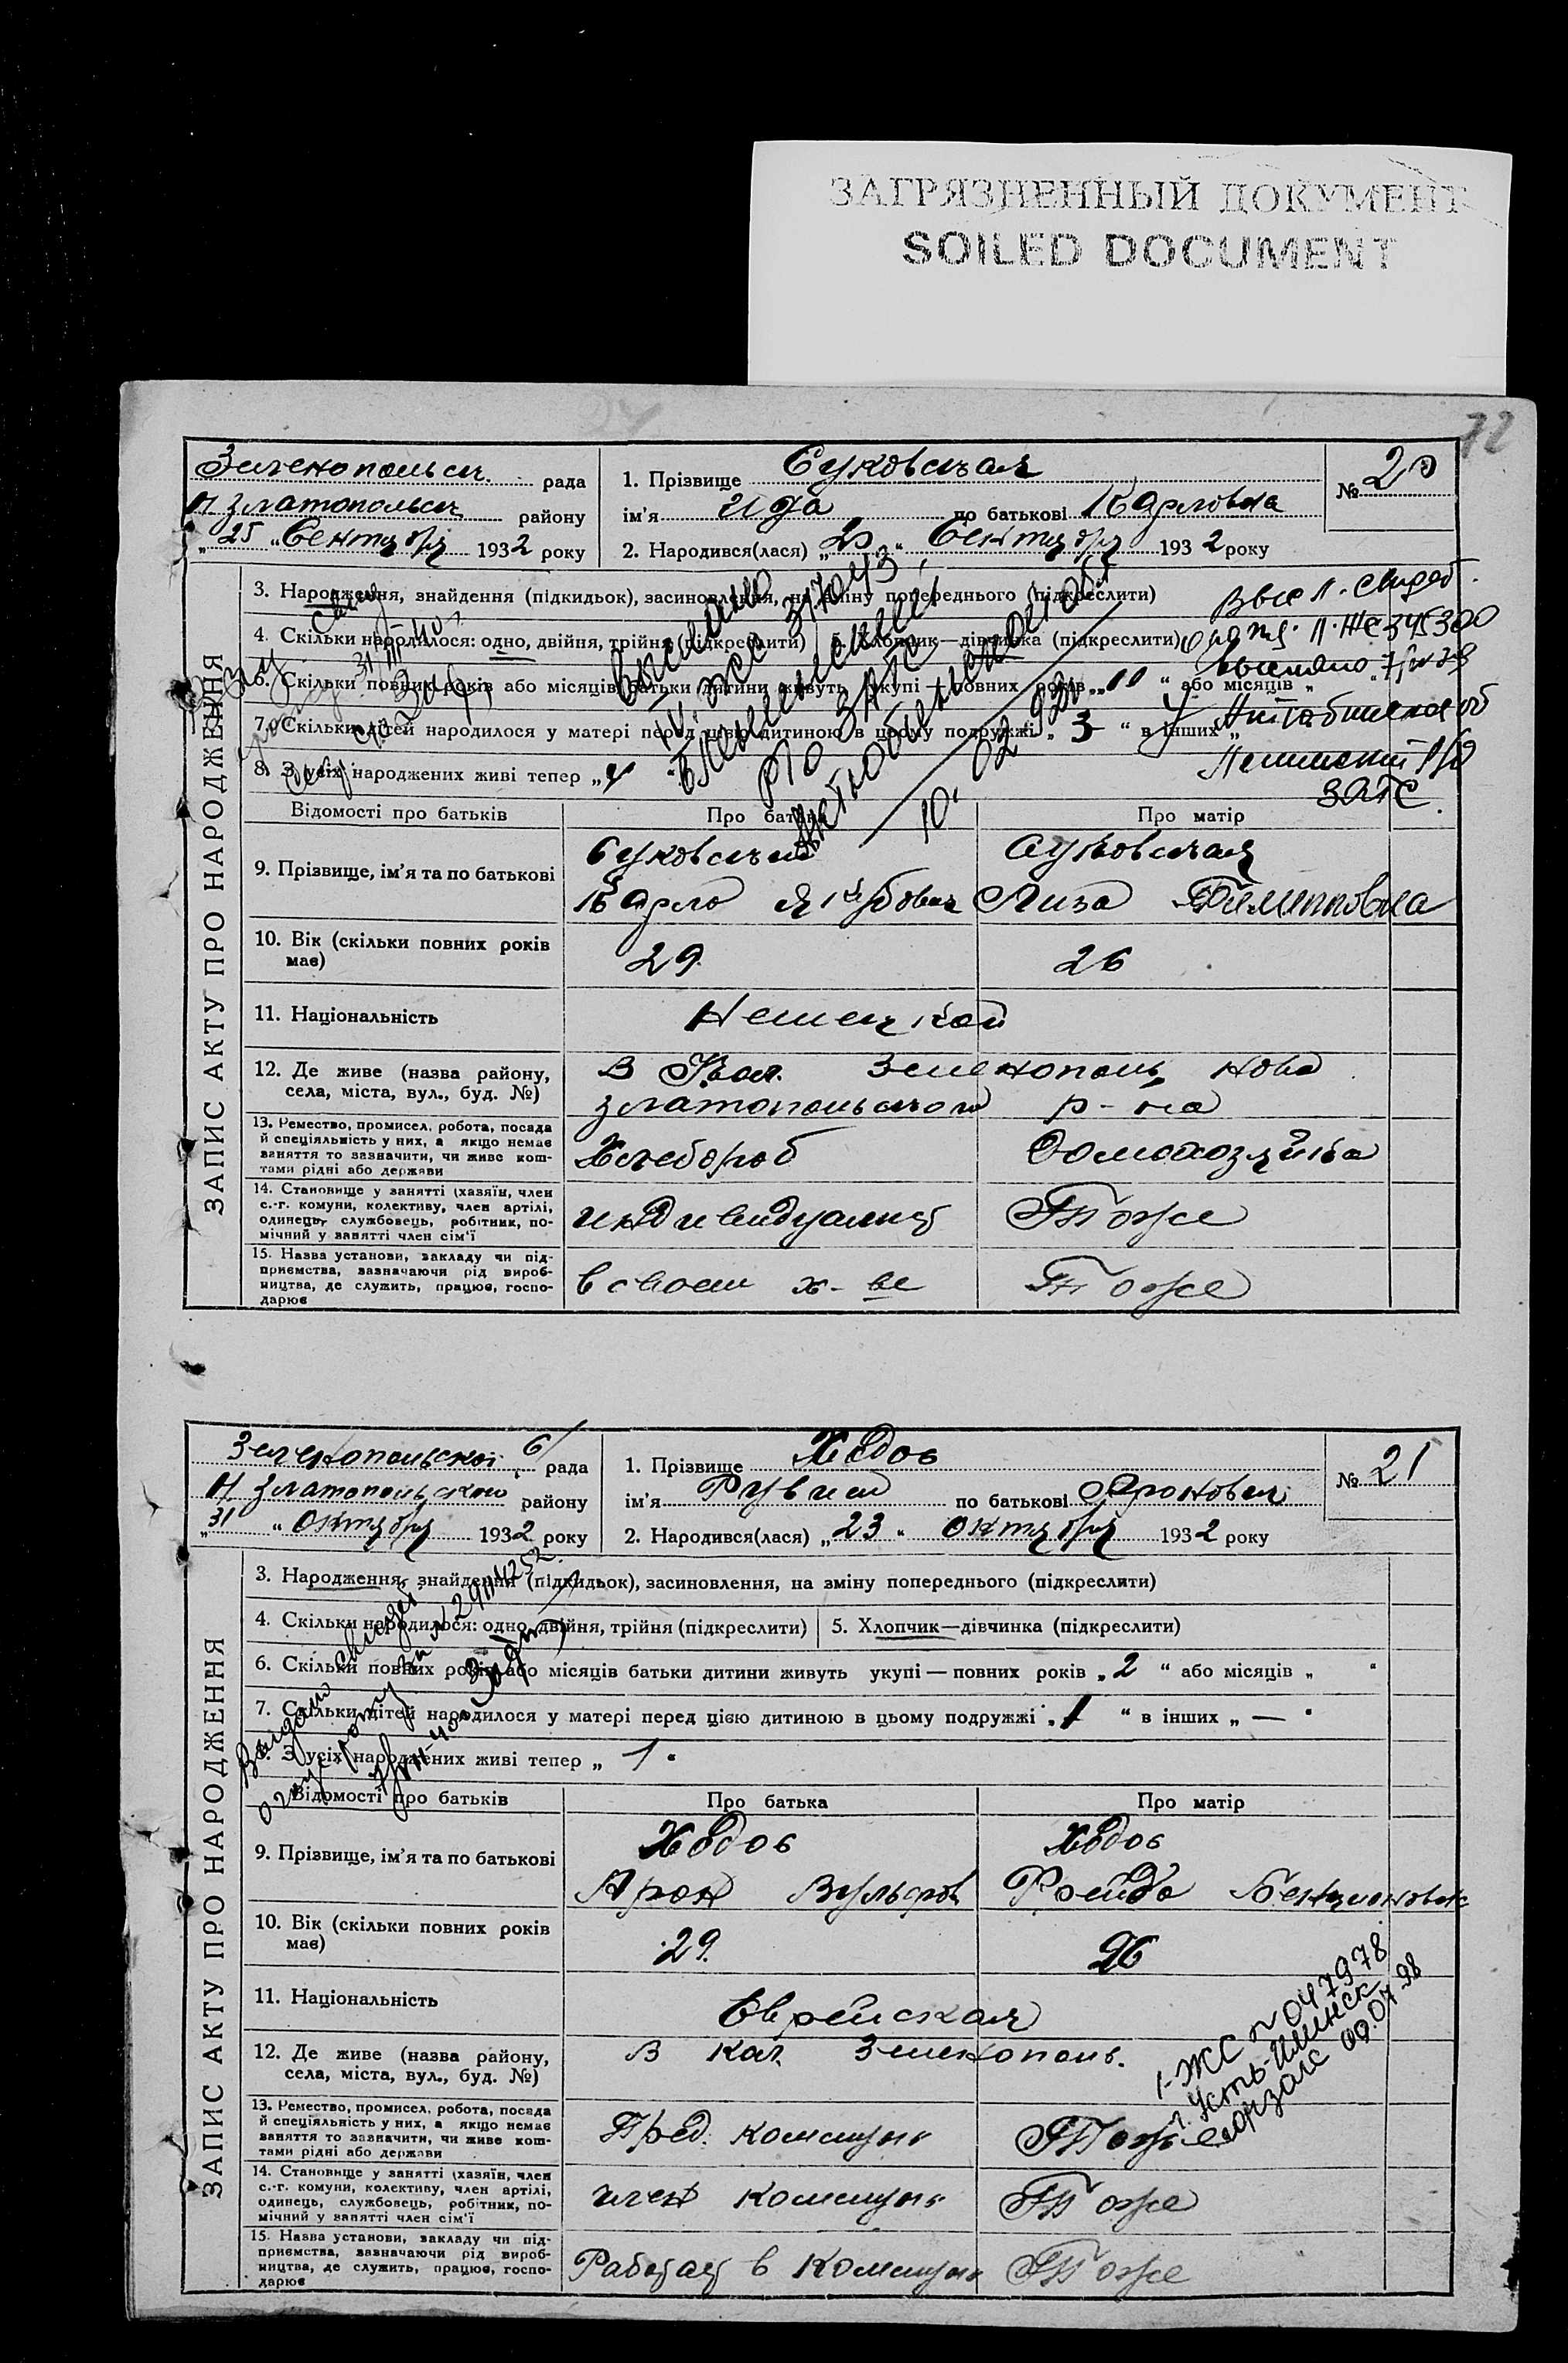 ЗАГРЯЗНЕННЫЙ ДОКУМЕНТ
SOILED DOCUMENT
72
Зеленопольск. рада
Н златопольск району
„25 " Сентября 1932 року
1. Прізвище Суковская
ім'я Ида по батькові Карловна
2. Народився(лася) „20 " Сентября 1932 року
№ 20
ЗАПИС АКТУ ПРО НАРОДЖЕННЯ
3. Народження, знайдення (підкидьок), засиновлення, на зміну попереднього (підкреслити)
4. Скільки народилося: одно, двійня, трійня (підкреслити) 5. Хлопчик—дівчинка (підкреслити)
6. Скільки повних років або місяців батьки дитини живуть укупі — повних років „ " або місяців „ "
7. Скільки дітей народилося у матері перед цією дитиною в цьому подружжі „ 3 " в інших „
8. З усіх народжених живі тепер „
выдано
IV. ЖС 317043
РО ЗАГС
Актюбинской обл
10. 02 92г
ЖС 345300
ЗАГС
Відомості про батьків Про батька Про матір
9. Прізвище, ім'я та по батькові
Суковский
Карло Якубович
Суковская
Лиза Филипповна
10. Вік (скільки повних років має) 29. 26
11. Національність Немецкой
12. Де живе (назва району, села, міста, вул., буд. №)
В Кол. Зеленополь, Ново
златопольского р-на
13. Ремество, промисел, робота, посада й спеціяльність у них, а якщо немає заняття то зазначити, чи живе коштами рідні або держави
Хлебороб Домохозяйка
14. Становище у занятті (хазяїн, член с.-г. комуни, колективу, член артілі, одинець, службовець, робітник, помічний у занятті член сім'ї
индивидуалист Тоже
15. Назва установи, закладу чи підприємства, зазначаючи рід виробництва, де служить, працює, господарює
в своем х-ве Тоже
Зеленопольской с/ рада
Н златопольского району
„31 " октября 1932 року
1. Прізвище Ходос
ім'я Рувим по батькові Аронович
2. Народився(лася) „ 23 " октября 1932 року
№ 21
ЗАПИС АКТУ ПРО НАРОДЖЕННЯ
3. Народження, знайдення (підкидьок), засиновлення, на зміну попереднього (підкреслити)
4. Скільки народилося: одно, двійня, трійня (підкреслити) 5. Хлопчик—дівчинка (підкреслити)
6. Скільки повних років або місяців батьки дитини живуть укупі — повних років „ 2 " або місяців „ "
7. Скільки дітей народилося у матері перед цією дитиною в цьому подружжі „ 1 " в інших „ — "
8. З усіх народжених живі тепер „ 1 "
Відомості про батьків Про батька Про матір
9. Прізвище, ім'я та по батькові
Ходос
Арон Вульфов
Ходос
Фрейда Бенционовна
10. Вік (скільки повних років має) 29. 26
11. Національність Еврейская
12. Де живе (назва району, села, міста, вул., буд. №)
В кол. Зеленополь.
13. Ремество, промисел, робота, посада й спеціяльність у них, а якщо немає заняття то зазначити, чи живе коштами рідні або держави
Пред. коммуны Тоже
14. Становище у занятті (хазяїн, член с.-г. комуни, колективу, член артілі, одинець, службовець, робітник, помічний у занятті член сім'ї
член коммуны Тоже
15. Назва установи, закладу чи підприємства, зазначаючи рід виробництва, де служить, працює, господарює
Работает в Коммуне Тоже
I-ЖС № 047978
г. Усть-Илимск
горзагс 09.07.98